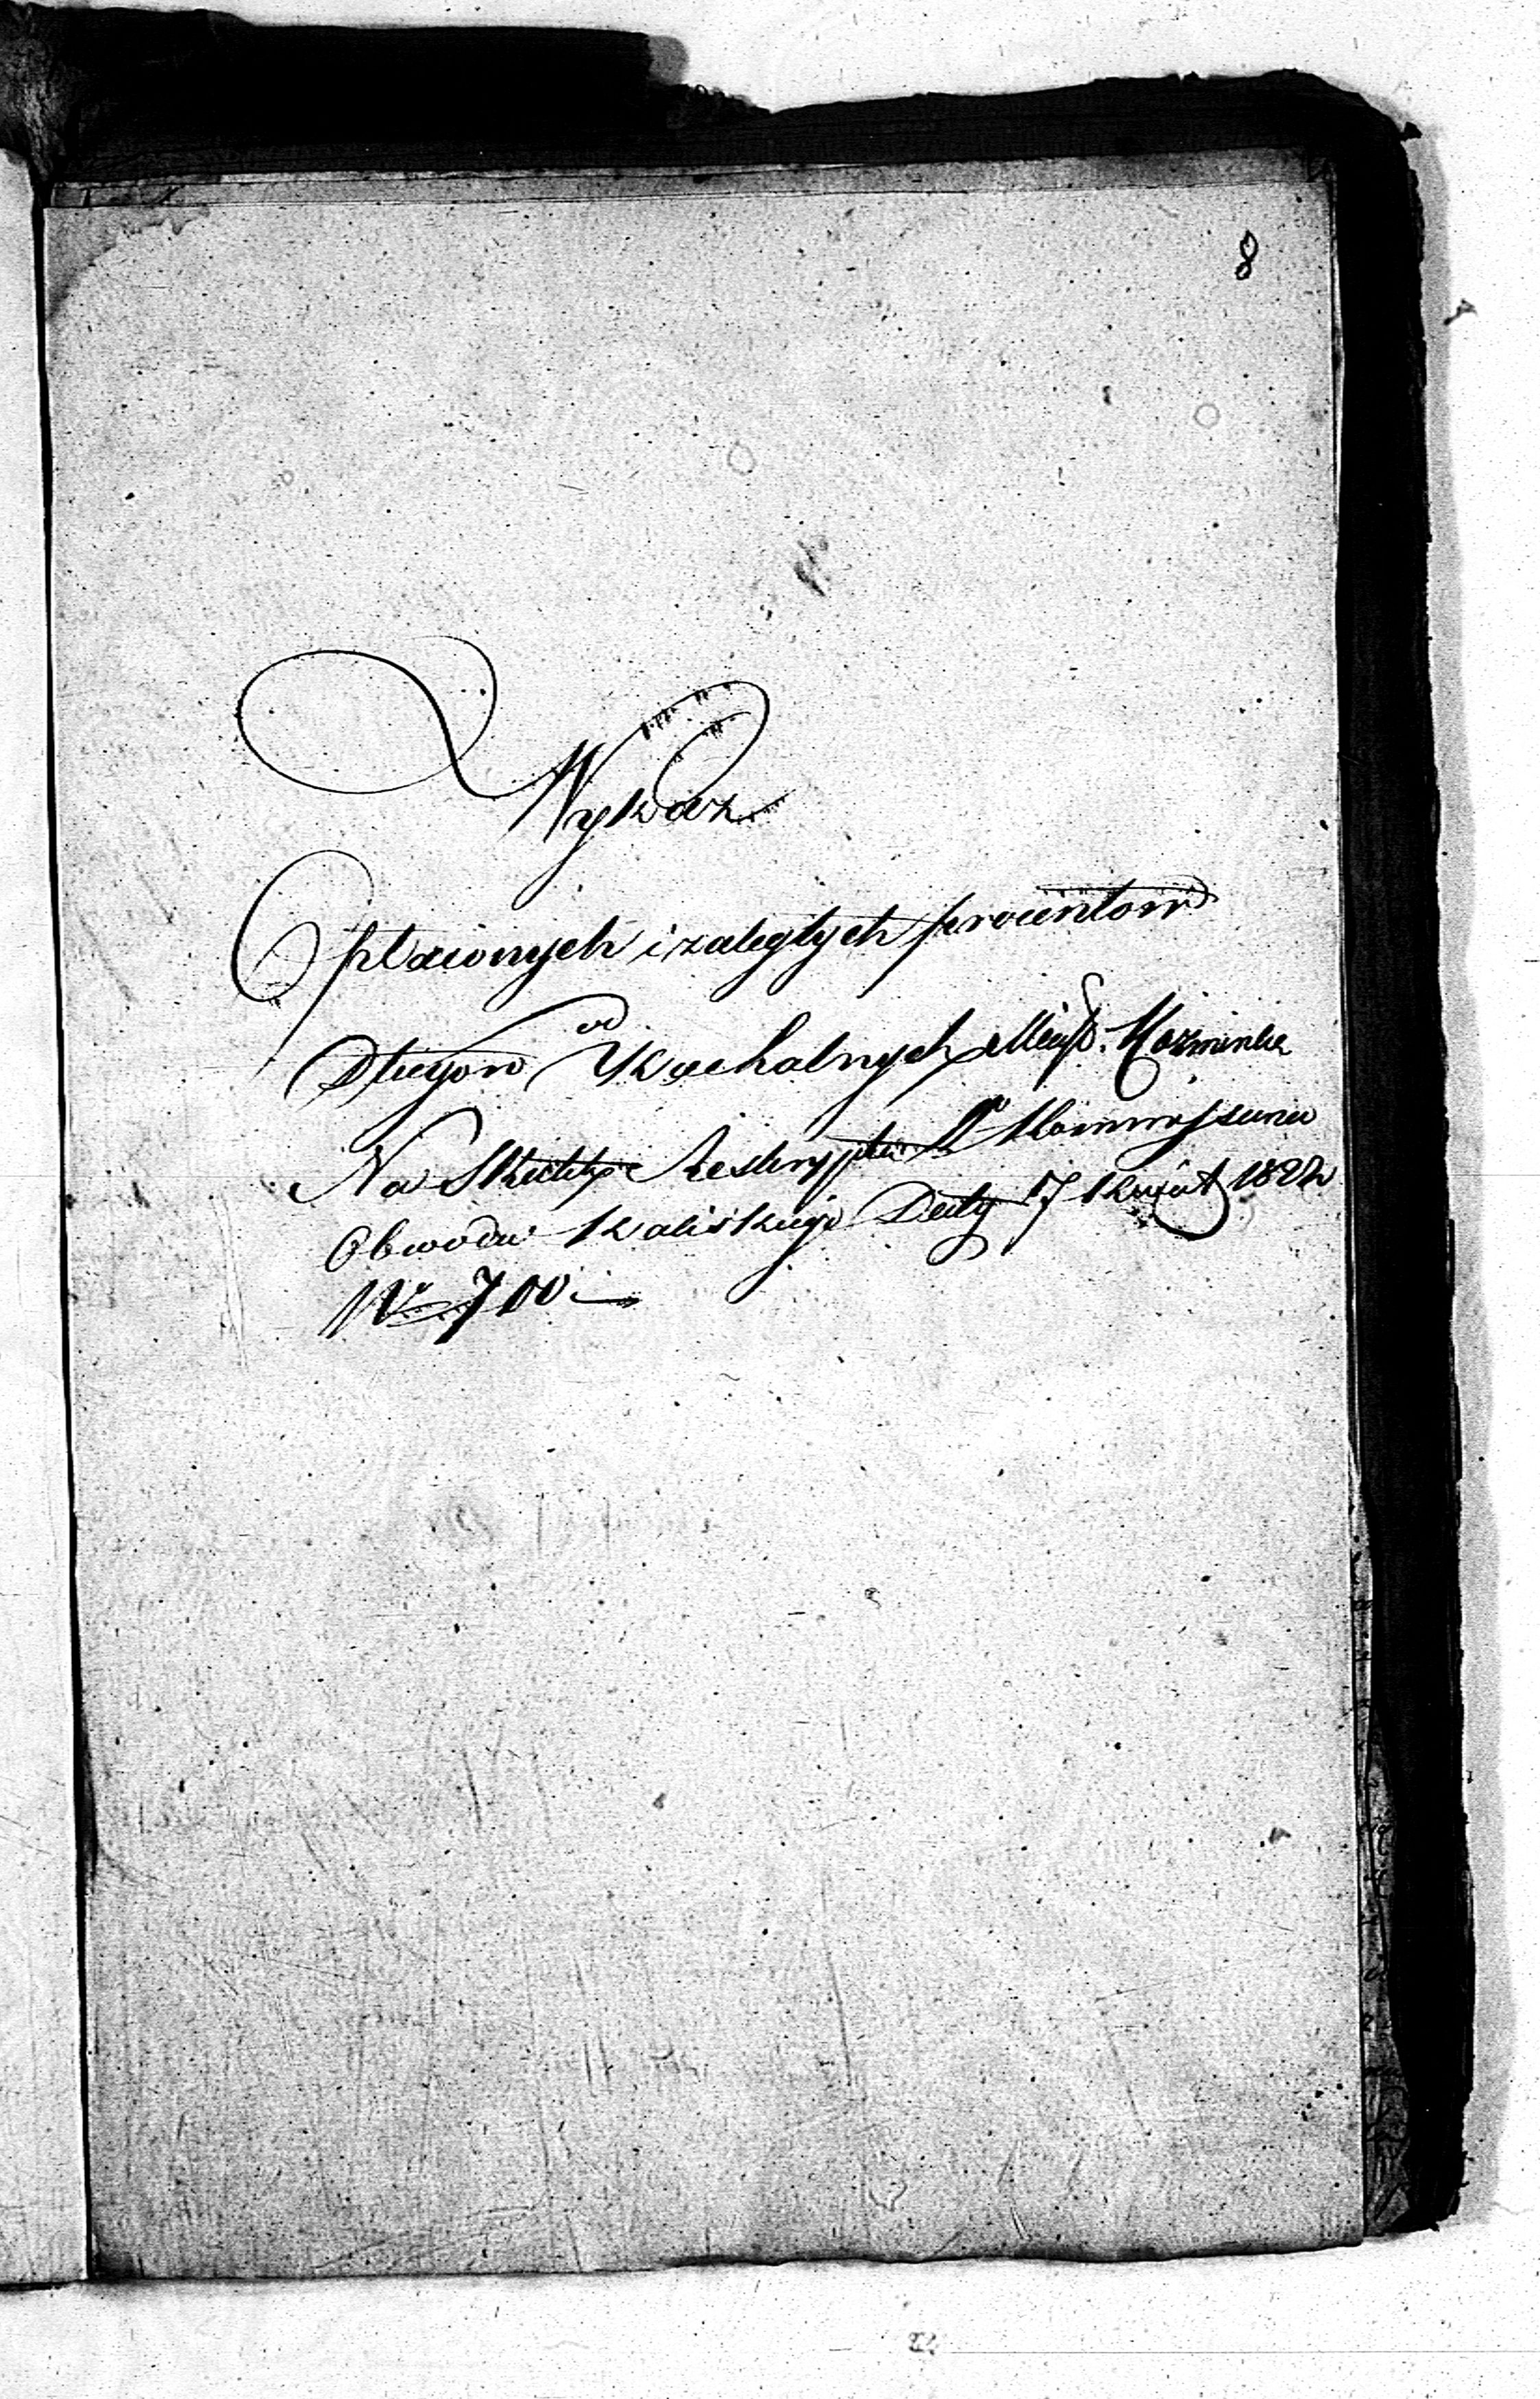 8
Wykaz
płaconych i zaległych procentow
od
Długow Kachalnych Miasta Kozminka
Na Skutek Reskryptu W° Kommissarza
Obwodu Kaliskiego Daty 17 Kwiet 1822
N° 700